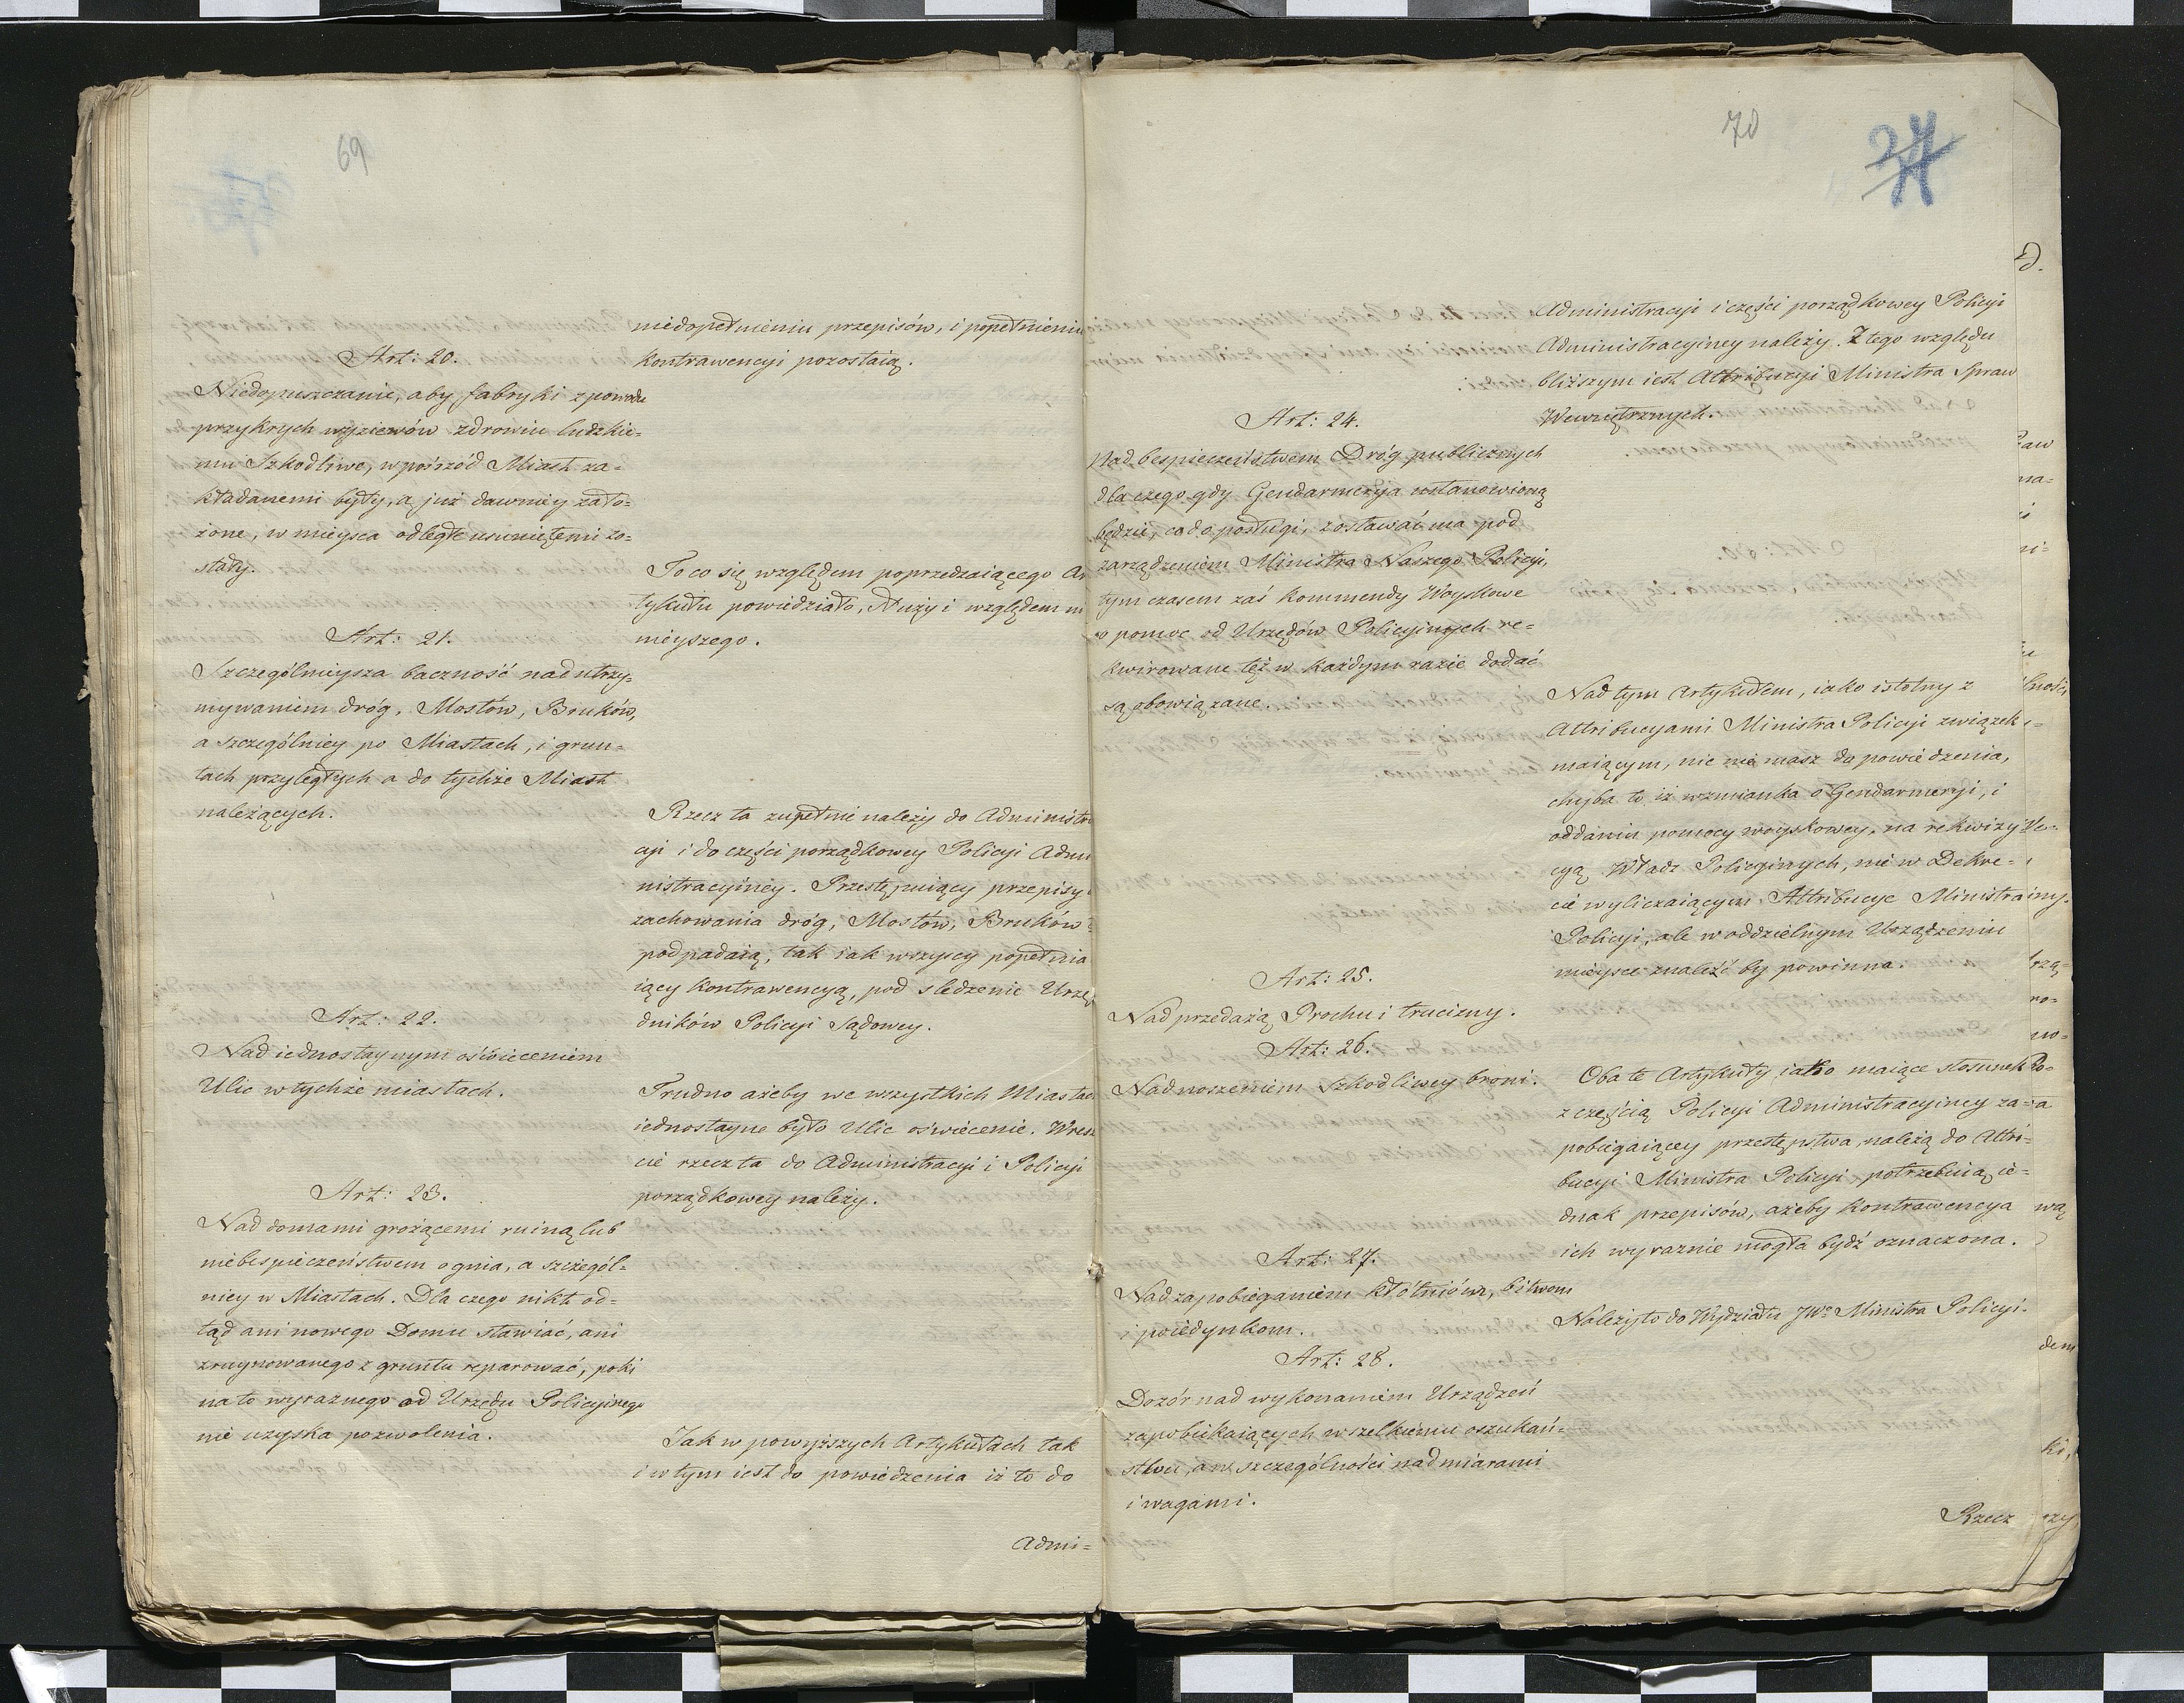 69
Art: 20.
Niedopuszczanie, aby fabryki z powodu
przykrych wyziewów zdrowiu ludzkie-
mu Szkodliwe, w pośrzód Miast za-
kładanemi były, a już dawniey zało-
żone, w mieysca odległe usuniętemi zo-
stały.
Art: 21.
Szczególnieysza baczność nad utrzy-
mywaniem dróg, Mostów, Bruków,
a szczególniey po Miastach, i grun-
tach przyległych a do tychże Miast
należących.
Art: 22.
Nad iednostaynym oświeceniem
Ulic w tychże miastach.
Art: 23.
Nad domami grożącemi ruiną lub
niebespieczeństwem ognia, a szczegól-
niey w Miastach. Dla czego nikt od-
tąd ani nowego Domu stawiać, ani
zruynowanego z gruntu reparować, poki
na to wyraznego od Urzędu Policyinego
nie uzyska pozwolenia.
niedopełnieniu przepisów, i popełnieniu
kontrawencyi pozostaią.
To co się względem poprzedzaiącego Ar
tykułu powiedziało, służy i względem ni
nieyszego.
Rzecz ta zupełnie należy do Administra
cyi i do części porządkowey Policyi Admi
nistracyiney. Przestępuiący przepisy
zachowania dróg, Mostów, Bruków
podpadaią, tak iak wszyscy popełnia
iący kontrawencyą, pod sledzenie Urzę
dników Policyi Sądowey.
Trudno ażeby we wszystkich Miastach
iednostayne było Ulic oświecenie. Wresz
cie rzecz ta do Administracyi i Policyi
porządkowey należy.
Jak w powyższych Artykułach tak
i w tym iest do powiedzenia iż to do
Admi-
70
24
Art: 24.
Nad bespieczeństwem Dróg publicznych
dla czego gdy Gendarmerya ustanowioną
będzie, co do posługi, zostawać ma pod
zarządzeniem Ministra Naszego Policyi,
tym czasem zaś Kommendy Woyskowe
o pomoc od Urzędów Policyinych re-
kwirowane też w każdym razie dodać
są obowiązane.
Art: 25.
Nad przedażą Prochu i trucizny.
Art: 26.
Nad noszeniem Szkodliwey broni.
Art: 27.
Nad zapobieganiem kłótniom, bitwom
i poiedynkom.
Art: 28.
Dozór nad wykonaniem Urządzeń
zapobiekaiących wszelkiemu oszukań-
stwu, a w szczególności nad miarami
i wagami.
Administracyi i części porządkowey Policyi
Administracyiney należy. Z tego względu
bliższym iest Attribucyi Ministra Spraw
Wewnętrznych.
Nad tym Artykułem, iako istotny z
Attribucyami Ministra Policyi związek
maiącym, nic nie masz do powiedzenia,
chyba to iż wzmianka o Gendarmeryi, i
oddaniu pomocy woyskowey, na rekwizy
cyą Władz Policyinych, nie w Dekre-
cie wyliczaiącym Attribucye Ministra
Policyi, ale w oddzielnym Urządzeniu
mieysce znaleźć by powinna.
Oba te Artykuły iako maiące stosunek
z częścią Policyi Administracyiney za-
pobiegaiącey przestępstwa, należą do Attri-
bucyi Ministra Policyi potrzebuią ie-
dnak przepisów, ażeby kontrawencya
ich wyraznie mogła bydź oznaczona.
Należy to do Wydziału JWo Ministra Policyi.
Rzecz